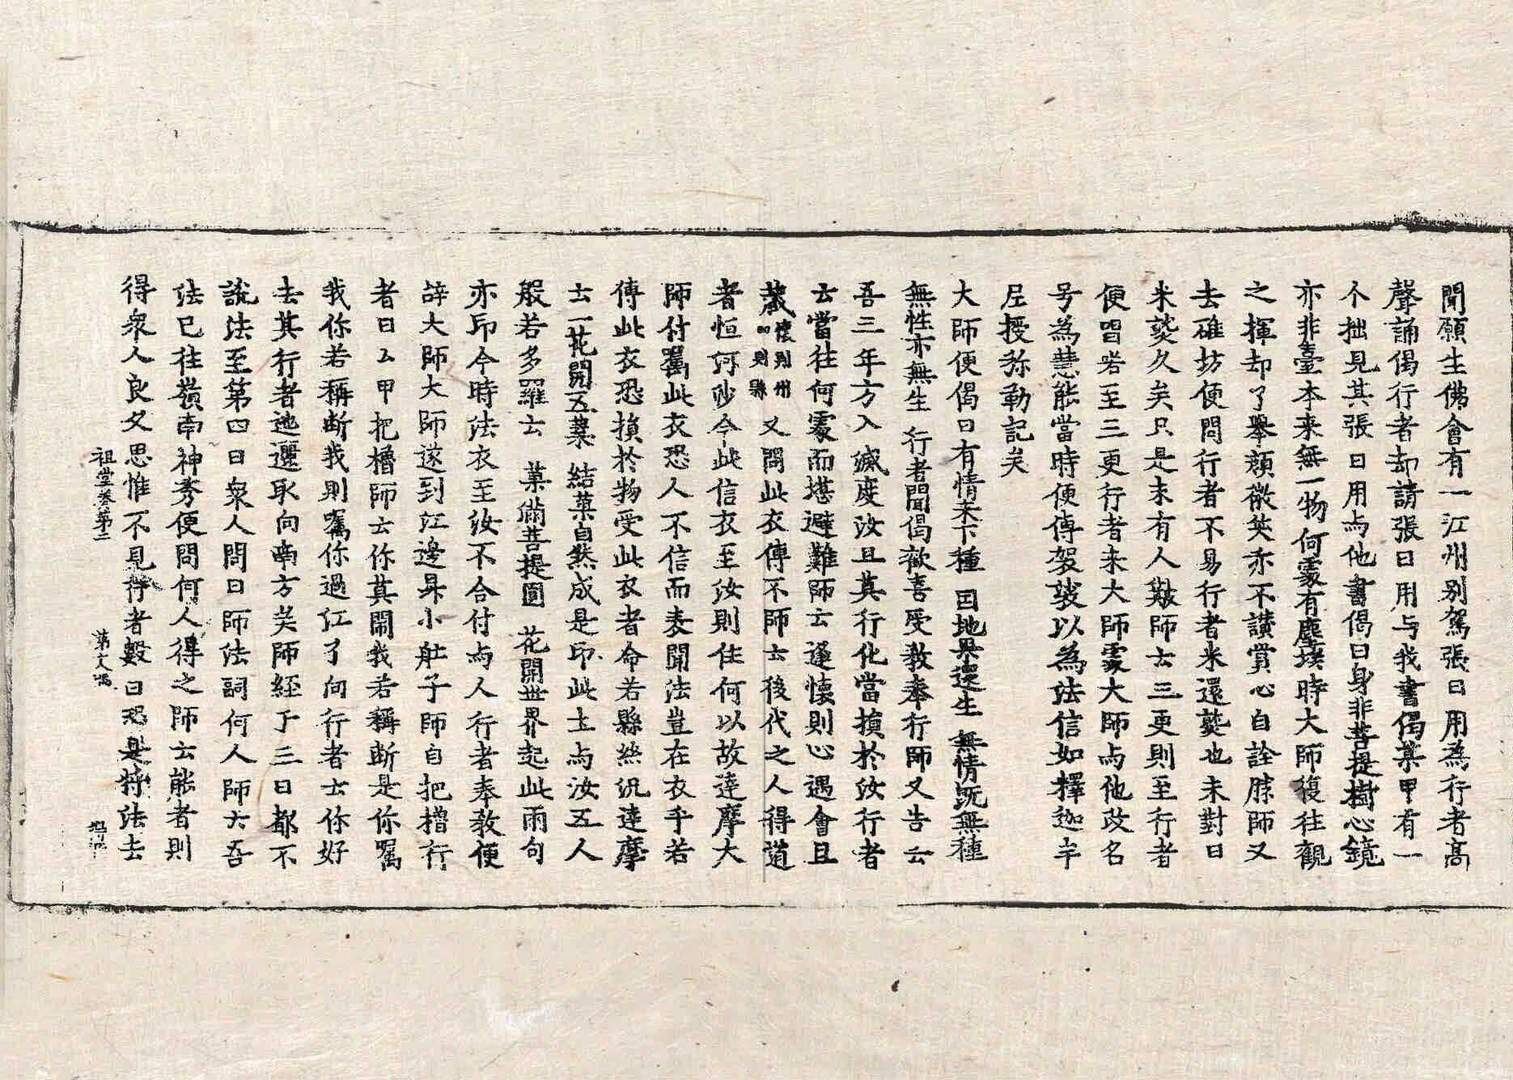 聞願生佛會有一江州別駕張曰用為行者高
聲誦偈行者却請張曰用与我書偈某甲有一
个拙見其張曰用与他書偈曰身非菩提樹心鏡
亦非臺本来無一物何處有塵埃時大師復往觀
之揮却了舉顏微笑亦不讃賞心自詮胜師又
去碓坊便問行者不易行者米還䵃也未對曰
米䵃久矣只是未有人簸師云三更則至行者
便唱喏至三更行者来大師處大師与他改名
号為慧能當時便傳袈裟以為法信如釋迦牟
尼授弥勒記矣
大師便偈曰有情来下種 因地果還生 無情既無種
無性亦無生 行者聞偈歡喜受教奉行師又告云
吾三年方入滅度汝且莫行化當損於汝行者
云當往何處而堪避難師云逢懷則止遇會且
藏懷則州四則縣 又問此衣傳不師云後代之人得道
者恒河沙今此信衣至汝則住何以故達摩大
師付囑此衣恐人不信而表聞法豈在衣乎若
傳此衣恐損於物受此衣者命若懸絲況達摩
云一花開五葉 結菓自然成是印此土与汝五人
般若多羅云 菓滿菩提圓 花開世界起此兩句
亦印今時法衣至汝不合付与人行者奉教便
辞大師大師遂到江邊昇小舡子師自把櫓行
者曰厶甲把櫓師云你莫鬧我若稱断是你囑
我你若稱断我則囑你過江了向行者云你好
去其行者迤邐取向南方矣師經于三日都不
說法至第四日衆人問曰師法詞何人師云吾
法已往嶺南神秀便問何人得之師云能者則
得衆人良久思惟不見行者數曰恐是将法去
祖堂卷第二 第十八張